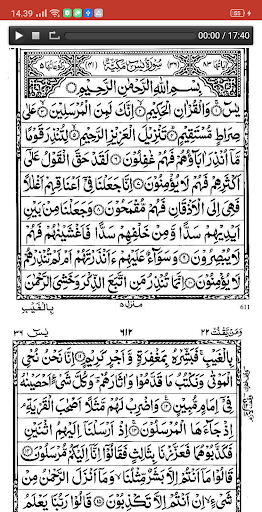 14.39
00:00 / 17:40
اٰيَاتُهَا ۸۳ (۳۶) سُوْرَةُ يٰسٓ مَكِّيَّةٌ (۴۱) رُكُوْعَاتُهَا ۵
بِسْمِ اللّٰهِ الرَّحْمٰنِ الرَّحِيْمِ
يٰسٓ ۝۱ وَالْقُرْاٰنِ الْحَكِيْمِ ۝۲ اِنَّكَ لَمِنَ الْمُرْسَلِيْنَ ۝۳ عَلٰى
صِرَاطٍ مُّسْتَقِيْمٍ ۝۴ تَنْزِيْلَ الْعَزِيْزِ الرَّحِيْمِ ۝۵ لِتُنْذِرَ قَوْمًا
مَّاۤ اُنْذِرَ اٰبَآؤُهُمْ فَهُمْ غٰفِلُوْنَ ۝۶ لَقَدْ حَقَّ الْقَوْلُ عَلٰۤى
اَكْثَرِهِمْ فَهُمْ لَا يُؤْمِنُوْنَ ۝۷ اِنَّا جَعَلْنَا فِيْۤ اَعْنَاقِهِمْ اَغْلٰلًا
فَهِيَ اِلَى الْاَذْقَانِ فَهُمْ مُّقْمَحُوْنَ ۝۸ وَجَعَلْنَا مِنْۢ بَيْنِ
اَيْدِيْهِمْ سَدًّا وَّمِنْ خَلْفِهِمْ سَدًّا فَاَغْشَيْنٰهُمْ فَهُمْ
لَا يُبْصِرُوْنَ ۝۹ وَسَوَآءٌ عَلَيْهِمْ ءَاَنْذَرْتَهُمْ اَمْ لَمْ تُنْذِرْهُمْ
لَا يُؤْمِنُوْنَ ۝۱۰ اِنَّمَا تُنْذِرُ مَنِ اتَّبَعَ الذِّكْرَ وَخَشِيَ الرَّحْمٰنَ
بِالْغَيْبِ
منزل ۵
611
وَمَنْ يَّقْنُتْ ۲۲
۶۱۲
يٰسٓ ۳۶
بِالْغَيْبِ ۚ فَبَشِّرْهُ بِمَغْفِرَةٍ وَّاَجْرٍ كَرِيْمٍ ۝۱۱ اِنَّا نَحْنُ نُحْيِ
الْمَوْتٰى وَنَكْتُبُ مَا قَدَّمُوْا وَاٰثَارَهُمْ ؕ وَكُلَّ شَيْءٍ اَحْصَيْنٰهُ
فِيْۤ اِمَامٍ مُّبِيْنٍ ۝۱۲ وَاضْرِبْ لَهُمْ مَّثَلًا اَصْحٰبَ الْقَرْيَةِ ۘ
اِذْ جَآءَهَا الْمُرْسَلُوْنَ ۝۱۳ اِذْ اَرْسَلْنَاۤ اِلَيْهِمُ اثْنَيْنِ
فَكَذَّبُوْهُمَا فَعَزَّزْنَا بِثَالِثٍ فَقَالُوْۤا اِنَّاۤ اِلَيْكُمْ مُّرْسَلُوْنَ ۝۱۴
قَالُوْا مَاۤ اَنْتُمْ اِلَّا بَشَرٌ مِّثْلُنَا ۙ وَمَاۤ اَنْزَلَ الرَّحْمٰنُ مِنْ
شَيْءٍ ۙ اِنْ اَنْتُمْ اِلَّا تَكْذِبُوْنَ ۝۱۵ قَالُوْا رَبُّنَا يَعْلَمُ